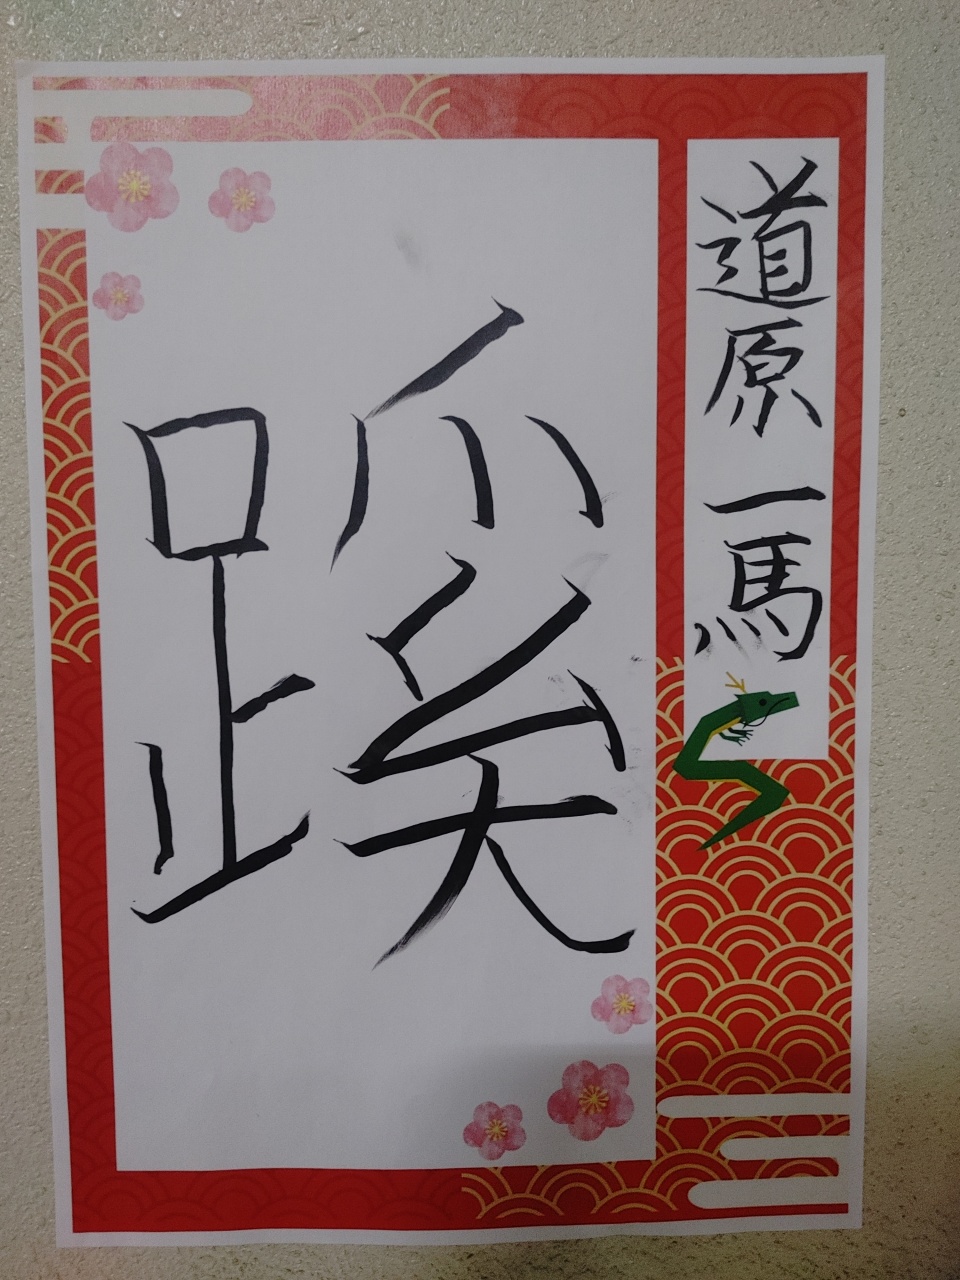 道原一馬
蹊